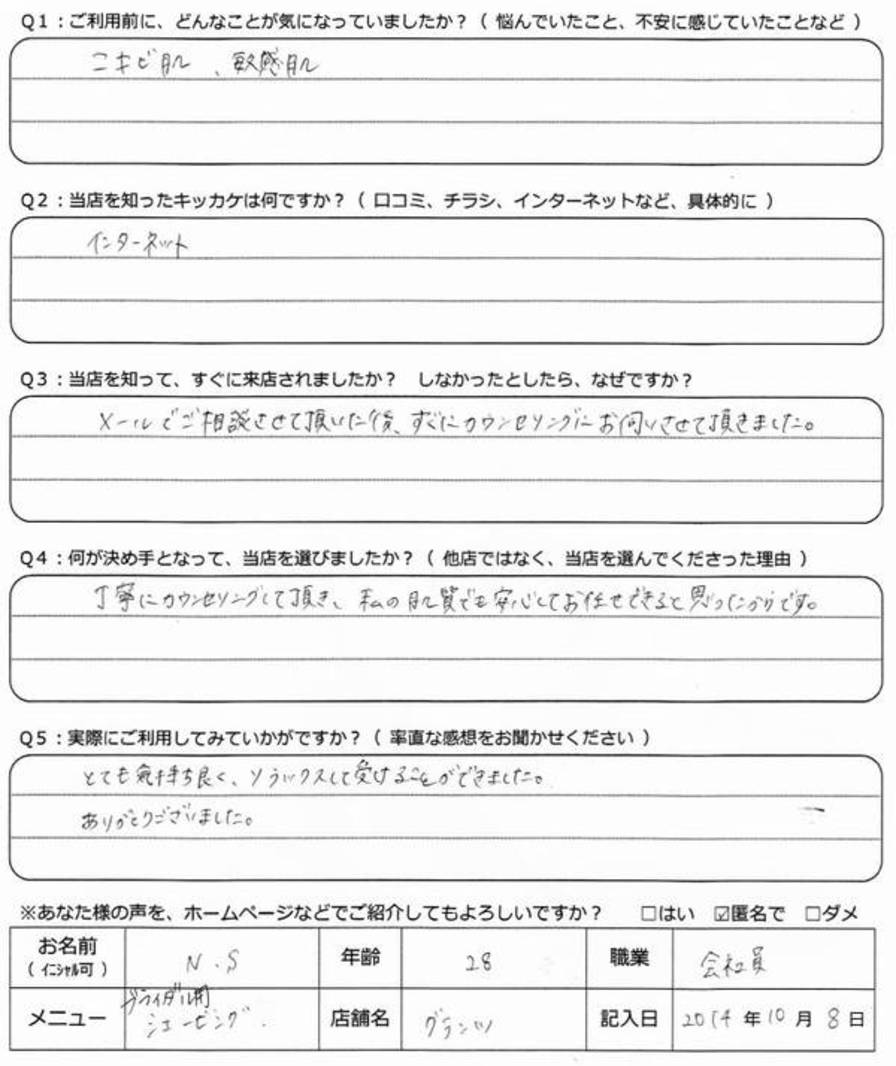 Q1：ご利用前に、どんなことが気になっていましたか？（ 悩んでいたこと、不安に感じていたことなど ）
ニキビ肌、敏感肌
Q2：当店を知ったキッカケは何ですか？（ 口コミ、チラシ、インターネットなど、具体的に ）
インターネット
Q3：当店を知って、すぐに来店されましたか？　しなかったとしたら、なぜですか？
メールでご相談させて頂いた後、すぐにカウンセリングにお伺いさせて頂きました。
Q4：何が決め手となって、当店を選びましたか？（ 他店ではなく、当店を選んでくださった理由 ）
丁寧にカウンセリングして頂き、私の肌質でも安心してお任せできると思ったからです。
Q5：実際にご利用してみていかがですか？（ 率直な感想をお聞かせください ）
とても気持ち良く、リラックスして受けることができました。
ありがとうございました。
※あなた様の声を、ホームページなどでご紹介してもよろしいですか？　□はい　☑匿名で　□ダメ
お名前（ イニシャル可 ）　N.S　年齢　28　職業　会社員
メニュー　ブライダル用シェービング　店舗名　グランツ　記入日　2014年10月8日